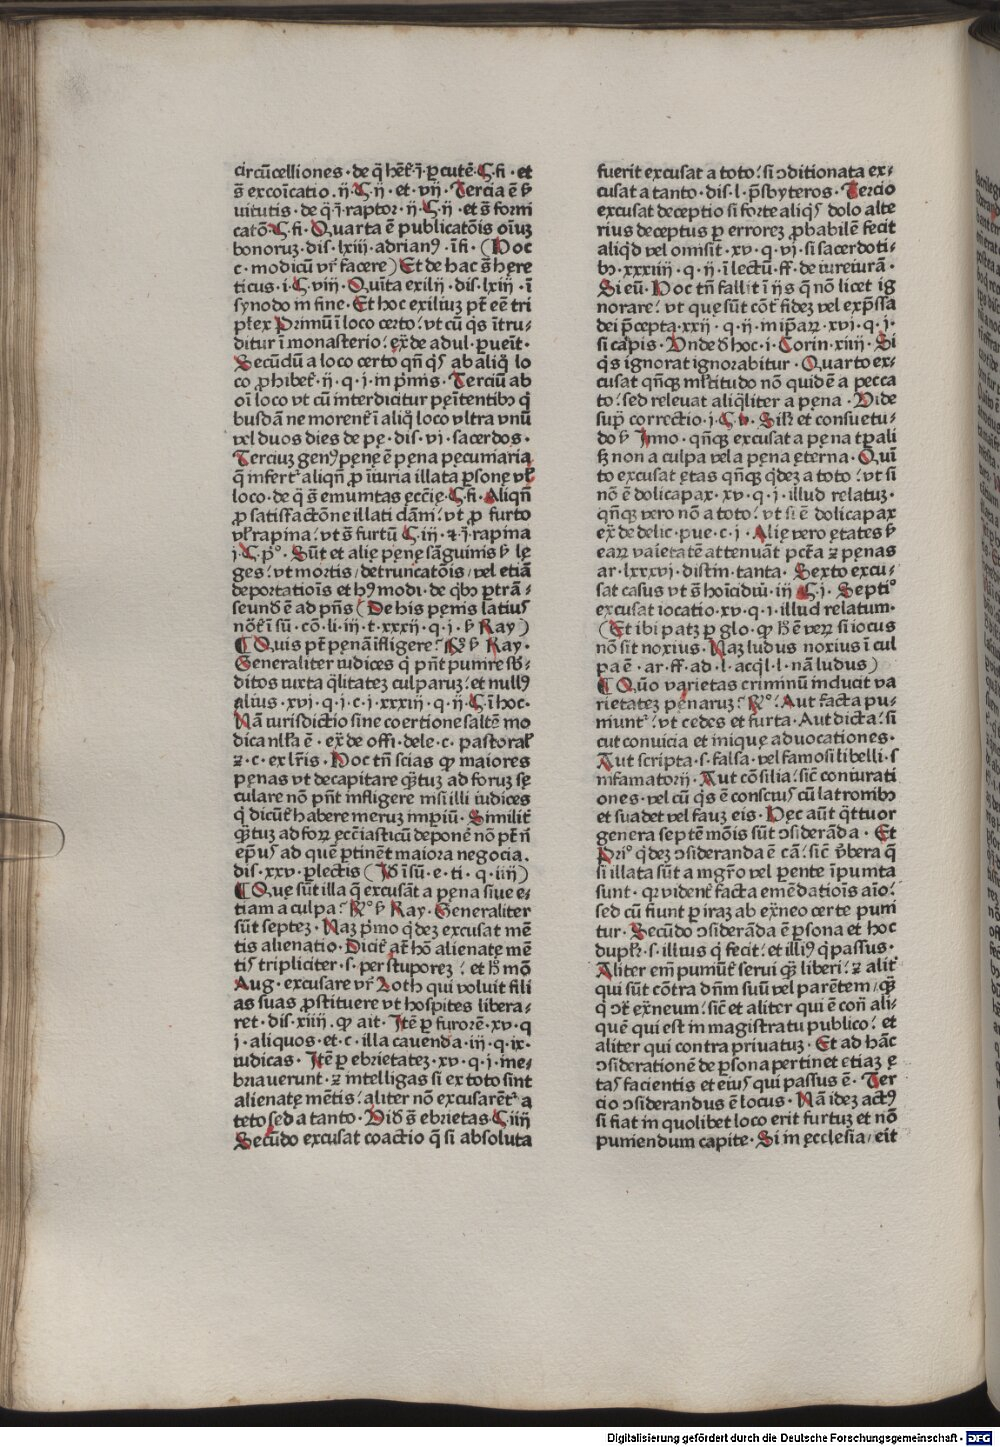 circūcelliones · de q̄ hēt᷑ · j · ꝑcutē · §. fi · et
s̄ excoīcatio · ij · §. ij · et · vij · Tercia ē ẜ
uitutis · de q̄ · j · raptor · ij · §. ij · et s̄ forni
catō · §. fi · Quarta ē publicatōis oīuꝫ
bonoruꝫ · dis · lxiii · adrianꝰ · ī fi · (Hoc
c · modicū vr̄ facere) Et de hac s̄ here
ticus · i · §. viii · Quīta exilij · dis · lxiii · ī
synodo in fine · Et hoc exiliuꝫ pt̄ eē tri
pl̄ex Primū ī loco certo · vt cū q̇s ītru⸗
ditur ī monasterio · ex̄ de adul · ꝑueīt ·
Secūdū a loco certo qn̄ q̇s ab aliq̇ lo
co ꝓhibet᷑ · ij · q · j · in pͥmis · Terciū ab
oī loco vt cū interdicitur pęītentibꝫ q̇
busdā ne morent᷑ ī aliq̇ loco vltra vnū
vel duos dies de pę · dis · vj · sacerdos ·
Terciuꝫ genꝰ pęnę ē pęna pęcuniaria
q̄ infert᷑ aliqn̄ ꝓ iīuria illata ꝑsonę vl̄
loco · de q̄ s̄ emunitas ęcc̄ię · §. fi · Aliqn̄
ꝓ satiſfactōne illati dāni · vt ꝓ furto
vl̄ rapina · vt s̄ furtū §. iij · ⁊ · j · rapina
j · §. pͦ · Sūt et alię pęnę sāguinis ẜ lę
ges · vt mortis / detruncatōis / vel etiā
deportatiōis et hꝰmodi · de q̇bꝫ ꝑtrā⸗
seundū ē ad pn̄s (De his pęnis latius
nōt᷑ ī sū · cō · li · iij · t · xxxij · q · j · ẜ Ray)
¶ Quis pt̄ pęnā īfligere · Rͦ ẜ Ray ·
Generaliter iudices q̇ pn̄t punire sb̄⸗
ditos iuxta q̄litateꝫ culparuꝫ · et nullꝰ
alius · xvj · q · j · c · j · xxxiij · q · ij · §. ī hoc ·
Nā iurisdictio sine coertione saltē mo
dica nl̄la ē · ex̄ de offi · dele · c · pastoral̄
⁊ · c · ex lr̄is · Hoc tn̄ scias ꝙ maiores
pęnas vt decapitare q̄tuꝫ ad foruꝫ sę
culare nō pn̄t infligere nisi illi iudices
q̇ dicūt᷑ habere meruꝫ imꝑiū · Similit᷑
q̄tuꝫ ad foꝝ ęcc̄iasticū deponē nō pt̄ n̄
ep̄us ad quē ꝑtinēt maiora negocia ·
dis · xxv · ꝑlectis (Id̄ ī sū · e · ti · q · iiij)
¶ Quę sūt illa q̄ excusāt a pęna siue e⸗
tiam a culpa · Rͦ ẜ Ray · Generaliter
sūt septeꝫ · Naꝫ pͥmo q̇deꝫ excusat mē
tis alienatio · Dicit᷑ at̄ hō alienatę mē
tis tripliciter · s · per stuporeꝫ · et hͦ mō
Aug · excusare vr̄ Loth qui voluit fili
as suas ꝓstituere vt hospites libera⸗
ret · dis · xiiij · ꝙ ait · Itē ꝑ furorē · xv · q
j · aliquos · et · c · illa cauenda · iij · q · ix ·
iudicas · Itē ꝑ ebrietateꝫ · xv · q · j · ine⸗
briauerunt · ⁊ intelligas si ex toto sint
alienatę mētis · aliter nō excusarēt᷑ a
toto sed a tanto · Vid̄ s̄ ebrietas §. iiij
Secūdo excusat coactio q̄ si absoluta
fuerit excusat a toto · si ꝯditionata ex⸗
cusat a tanto · dis · l · p̄sbyteros · Tercio
excusat deceptio si forte aliq̇s dolo alte
rius deceptus ꝑ erroreꝫ ꝓbabilē fecit
aliqd̄ vel omisit · xv · q · vj · si sacerdoti⸗
bꝫ · xxxiiij · q · ij · ī lectū · ff · de iureiurā ·
Si eū · Hoc tn̄ fallit ī ijs q̄ nō licet ig
norare · vt quę sūt cōt᷑ fideꝫ vel exp̄ssa
dei p̄cepta · xxij · q · ij · in ip̄aꝝ · xvj · q · j ·
si cupis · Vnde d̄ hoc · i · Corin · xiiij · Si
q̇s ignorat ignorabitur · Quarto ex⸗
cusat qn̄qꝫ ml̄titudo nō quidē a pecca
to · sed releuat aliq̄liter a pęna · Vide
supͣ correctio · j · §. v · Sil̄r et consuetu⸗
do ẜ Inno · qn̄qꝫ excusat a pęna tꝑali
sꝫ non a culpa vel a pęna ęterna · Quī
to excusat ętas qn̄qꝫ q̇deꝫ a toto · vt si
nō ē doli capax · xv · q · j · illud relatuꝫ ·
qn̄qꝫ vero nō a toto · vt si ē doli capax
ex̄ de delic · pue · c · j · Alię vero ętates ẜ
eaꝝ vaietatē attenuāt pctā ⁊ pęnas
ar · lxxxvj · distin · tanta · Sexto excu⸗
sat casus vt s̄ hoīcidiū · iij §. j · Septiͦ
excusat iocatio · xv · q · j · illud relatum ·
(Et ibi patꝫ ꝑ glo · ꝙ hͦ ē veꝝ si iocus
nō sit noxius · Naꝫ ludus noxius ī cul
pa ē · ar · ff · ad · l · acq̇l · l · nā ludus)
¶ Quō varietas criminū inducit va
rietateꝫ pęnaruꝫ · Rͦ · Aut facta pu⸗
niunt᷑ · vt cedes et furta · Aut dicta · si
cut conuicia et iniquę aduocationes ·
Aut scripta · s · falsa · vel famosi libelli · s
infamatorij · Aut cōsilia · sic̄ coniurati
ones · vel cū q̇s ē conscius cū latronibꝫ
et suadet vel fauꝫ eis · Hęc aūt q̄ttuor
genera septē mōis sūt ꝯsiderāda · Et
Priͦ q̇deꝫ ꝯsideranda ē cā · sic̄ v̄bera q̄
si illata sūt a mgr̄o vel ꝑente īpunita
sunt · qꝛ vident᷑ facta emēdatiōis aīo ·
sed cū fiunt ꝑ iraꝫ ab ex̄neo certe puni
tur · Secūdo ꝯsiderāda ē ꝑsona et hoc
dupl̄r · s · illius q̇ fecit · et illiꝰ q̇ passus ·
Aliter em̄ puniūt᷑ serui q̄ꝫ liberi · ⁊ alit᷑
qui sūt cōtra dn̄m suū vel parētem / q̄ꝫ
q̇ ꝯt᷑ ex̄neum · sic̄ et aliter qui ē con̄ ali⸗
quē qui est in magistratu publico · et
aliter qui contra priuatuꝫ · Et ad hāc
ꝯsiderationē de ꝑsona pertinet etiaꝫ ę
tas facientis et eius qui passus ē · Ter
cio ꝯsiderandus ē locus · Nā ideꝫ actꝰ
si fiat in quolibet loco erit furtuꝫ et nō
puniendum capite · Si in ęcclesia / eīt
Digitalisierung gefördert durch die Deutsche Forschungsgemeinschaft · DFG